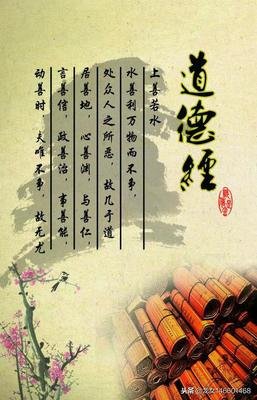 道德經
上善若水
水善利万物而不争,
处众人之所恶,故几于道
居善地,心善渊,与善仁,
言善信,政善治,事善能,
动善时 夫唯不争,故无尤
头条@龙女146601468